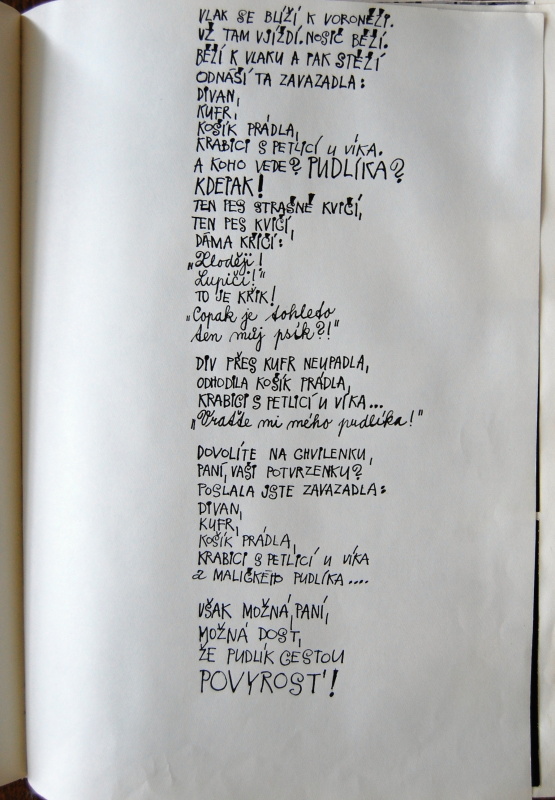 VLAK SE BLÍŽÍ K VORONĚŽI.
UŽ TAM VJÍŽDÍ. NOSIČ BĚŽÍ.
BĚŽÍ K VLAKU A PAK STĚŽÍ
ODNÁŠÍ TA ZAVAZADLA:
DIVAN,
KUFR,
KOŠÍK PRÁDLA,
KRABICI S PETLICÍ U VÍKA.
A KOHO VEDE? PUDLÍKA?
KDEPAK!
TEN PES STRAŠNĚ KVIČÍ,
TEN PES KVIČÍ,
DÁMA KŘIČÍ:
„Zloději!
Lupiči!“
TO JE KŘIK!
„Copak je tohleto
ten můj psík?!“
DIV PŘES KUFR NEUPADLA,
ODHODILA KOŠÍK PRÁDLA,
KRABICI S PETLICÍ U VÍKA...
„Vraťte mi mého pudlíka!“
DOVOLÍTE NA CHVILENKU,
PANÍ, VAŠI POTVRZENKU?
POSLALA JSTE ZAVAZADLA:
DIVAN,
KUFR,
KOŠÍK PRÁDLA,
KRABICI S PETLICÍ U VÍKA
a MALIČKÉHO PUDLÍKA....
VŠAK MOŽNÁ, PANÍ,
MOŽNÁ DOST,
ŽE PUDLÍK CESTOU
POVYROST'!